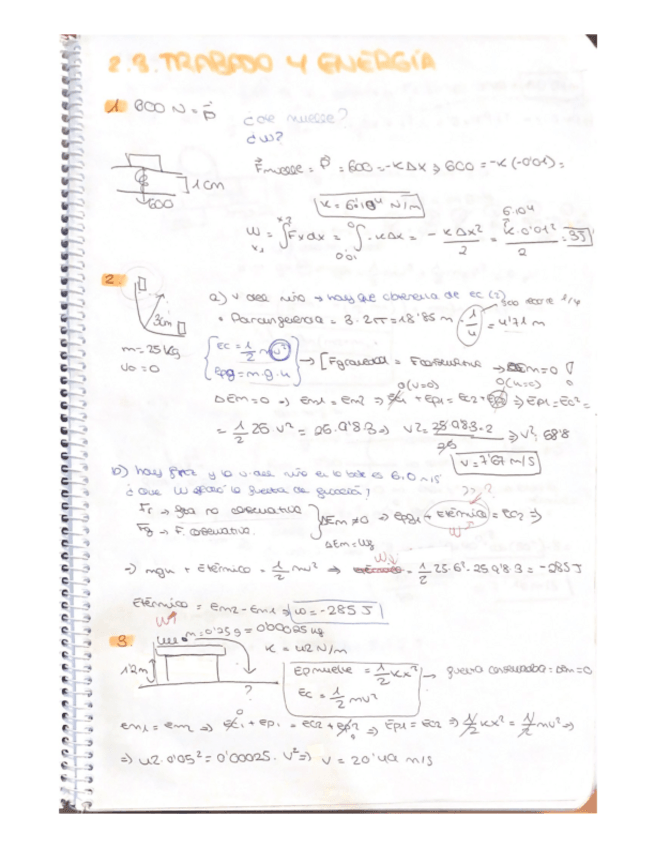 2.3. TRABAJO Y ENERGÍA
1. 600 N = P⃗ ¿cte muelle?
¿W?
F⃗muelle = P⃗ = 600 = -KΔx → 600 = -K(-0'01) =
1cm
600
K = 6·10⁴ N/m
W = ∫Fxdx = ∫-KΔx = -KΔx²/2 = 6·10⁴ 0'01²/2 = 3J
2.
3m
a) v del niño → hay que obtenerla de ec (2)
Parangencia = 3·2π = 18'85 m · 1/4 = 4'71 m
m = 25 Kg
v0 = 0
Ec = 1/2 mv²
Epg = m·g·h
→ [Fgravedad = Fconservativa → ΔEm = 0
0(v=0) 0(h=0)
ΔEm = 0 → Em1 = Em2 → Ec1 + Ep1 = Ec2 + Ep2 → Ep1 = Ec2 =
= 1/2 25 v² = 25·9'8·3 → v² = 25·9'8·3·2/25 → v² = 58'8
v = 7'67 m/s
b) hay froz y la v del niño en la base es 6,0 m/s
¿que W efectuó la fuerza de fricción?
Fr → fza no conservativa
Fg → F. conservativa.
ΔEm ≠ 0 → Epg1 + Etérmica = Ec2 ⇒
W
→ mgh + Etérmico = 1/2 mv² → = 1/2 25·6² - 25·9'8·3 = -285J
Etérmico = Em2 - Em1 → W = -285 J
W
3
m = 0'25g = 0'00025 kg
K = 42 N/m
1'2m
?
Ep muelle = 1/2 Kx²
Ec = 1/2 mv²
→ fuerza conservativa: ΔEm = 0
Em1 = Em2 ⇒ Ec1 + Ep1 = Ec2 + Ep2 ⇒ Ep1 = Ec2 ⇒ 1/2 Kx² = 1/2 mv² ⇒
⇒ 42·0'05² = 0'00025·v² ⇒ v = 20'49 m/s